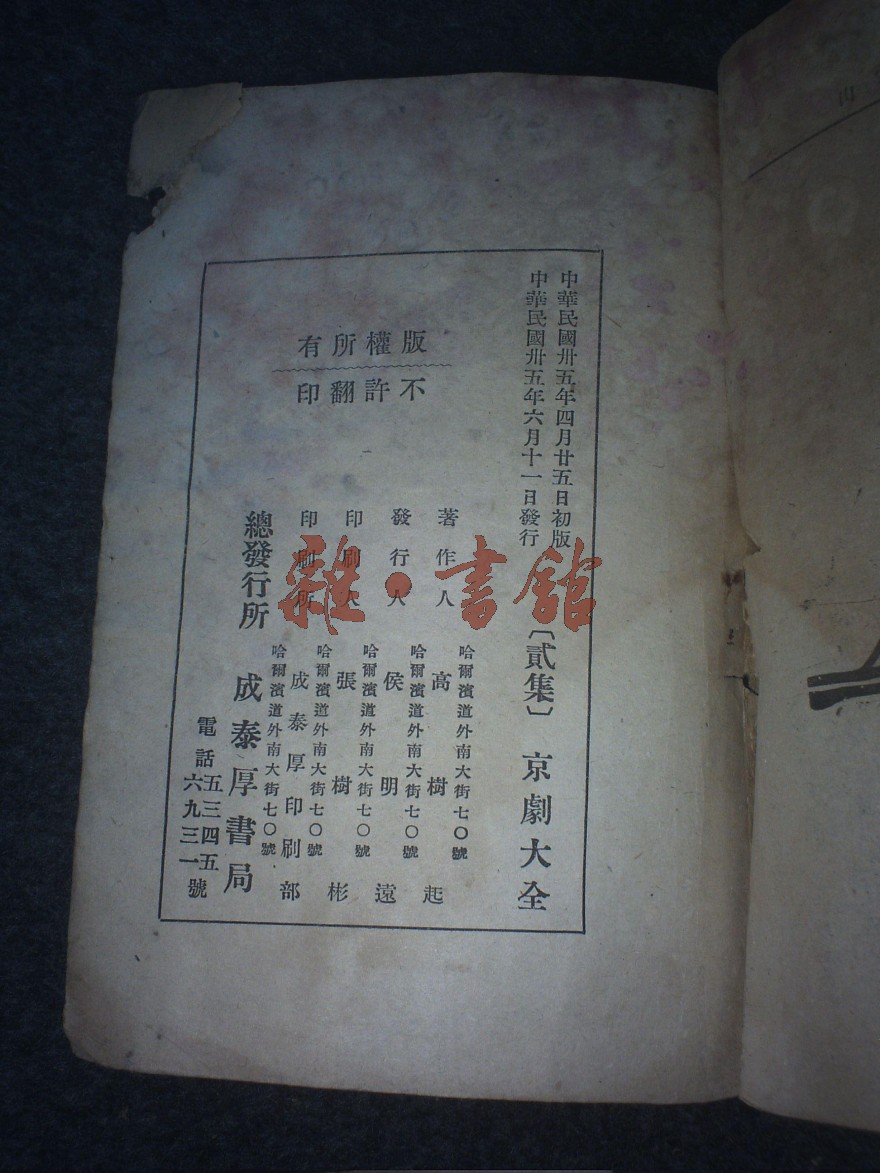 中華民國卅五年四月廿五日初版
中華民國卅五年六月十一日發行
〔貳集〕 京劇大全
版權所有
不許翻印
哈爾濱道外南大街七〇號
著作人 高樹起
哈爾濱道外南大街七〇號
發行人 侯明遠
哈爾濱道外南大街七〇號
印刷人 張樹彬
哈爾濱道外南大街七〇號
印刷所 成泰厚印刷部
哈爾濱道外南大街七〇號
總發行所 成泰厚書局
電話 五三四五
六九三一 號
雜·書館